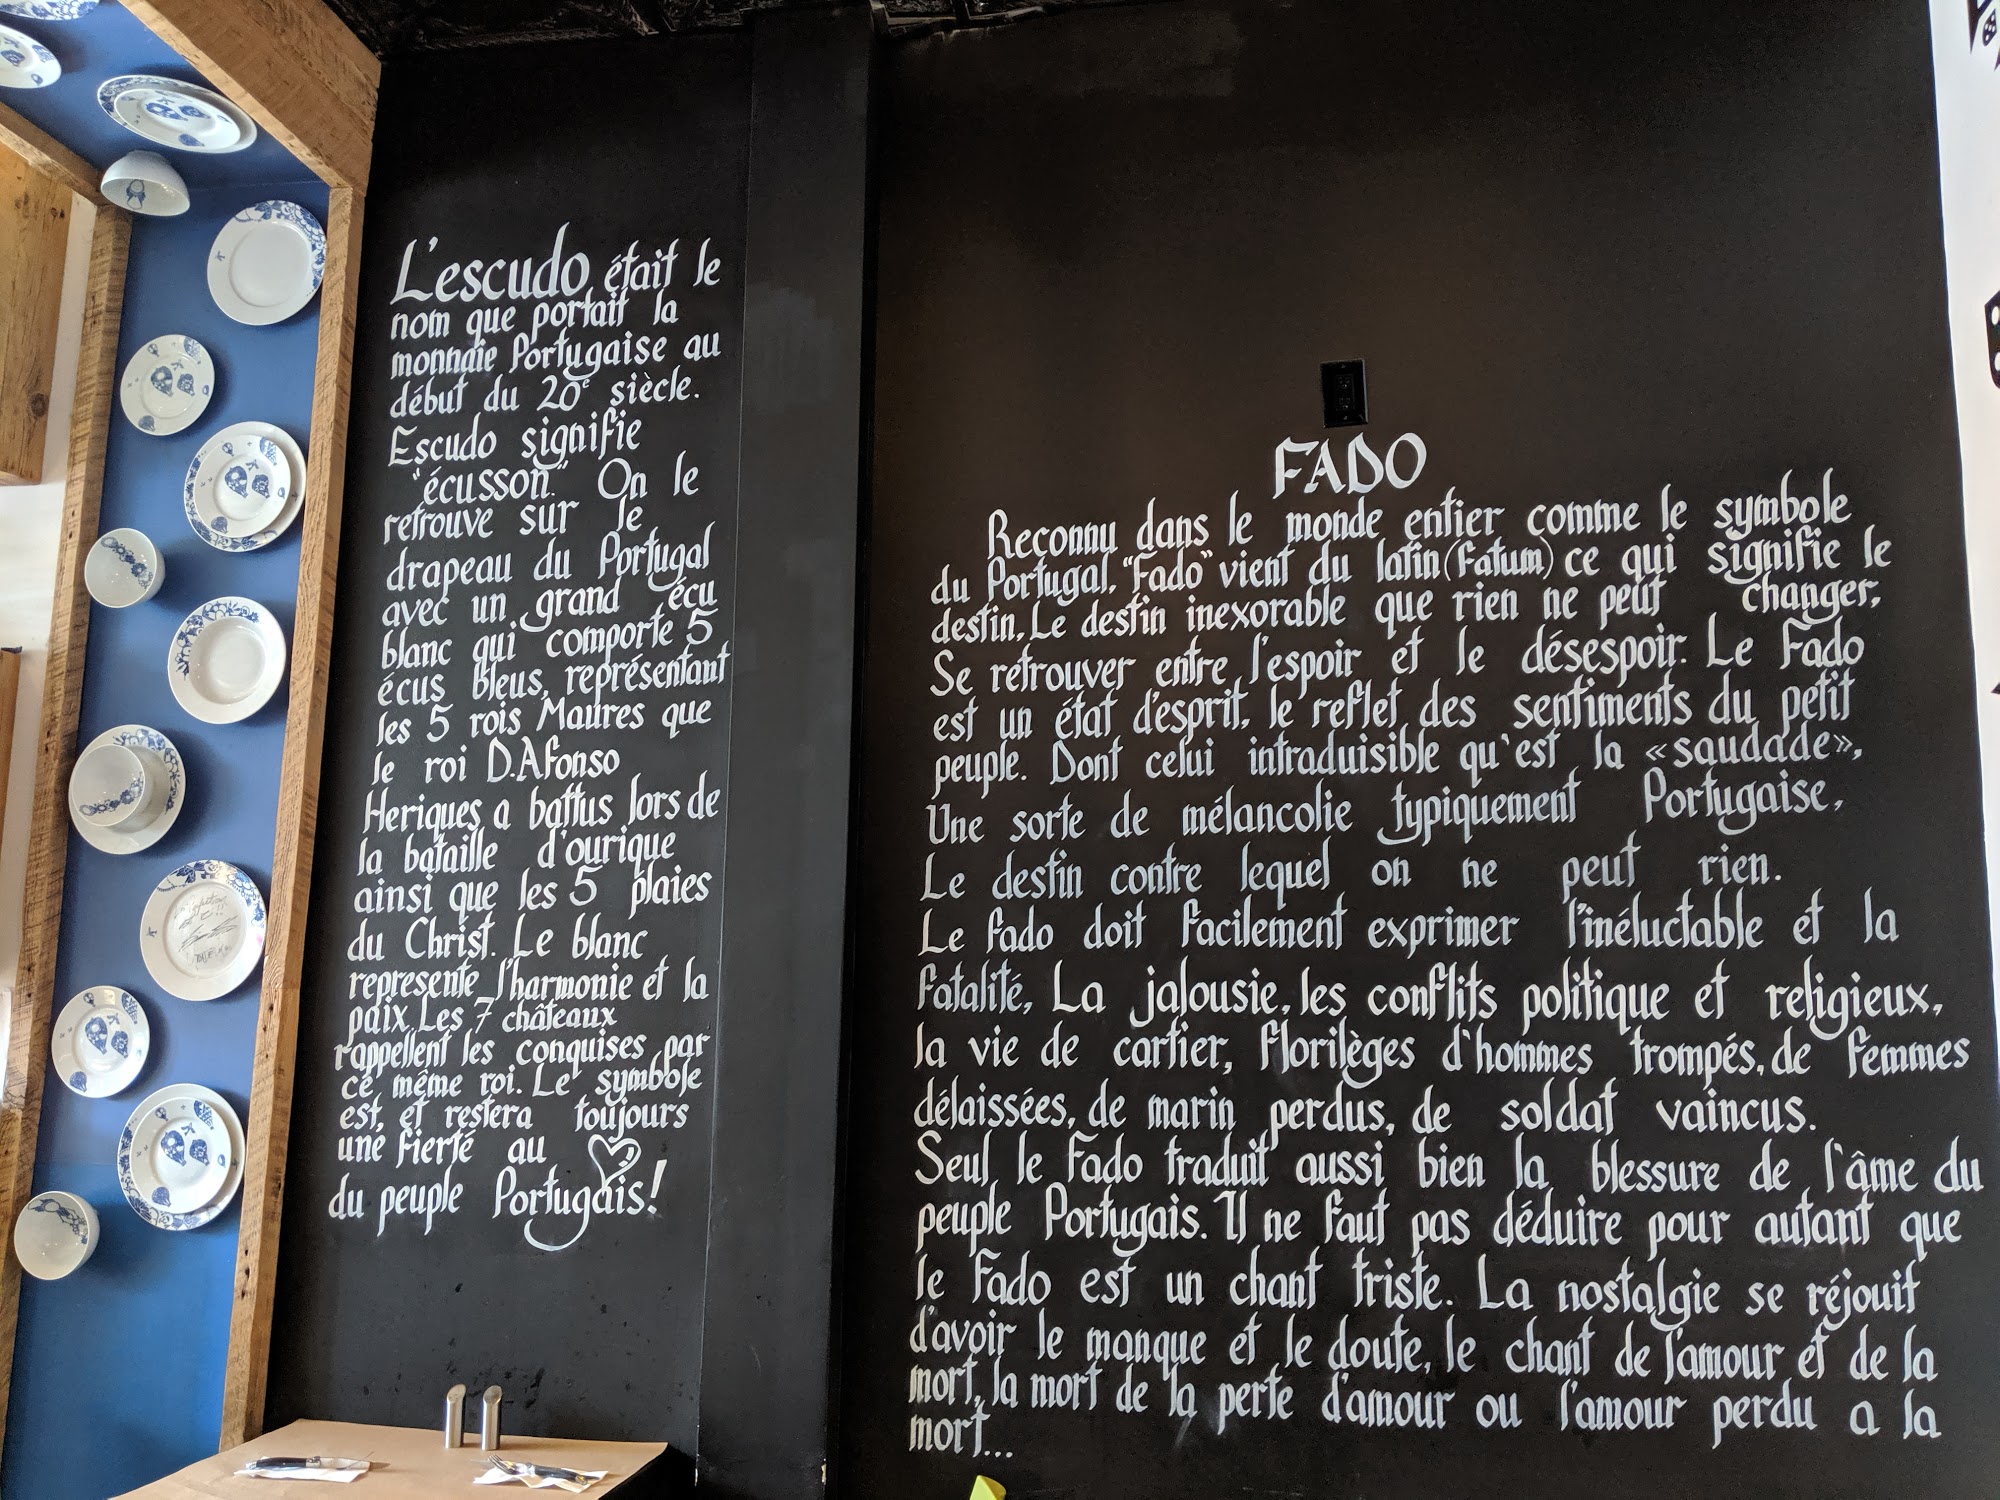 L'escudo était le
nom que portait la
monnaie Portugaise au
début du 20e siècle.
Escudo signifie
"écusson." On le
retrouve sur le
drapeau du Portugal
avec un grand écu
blanc qui comporte 5
écus bleus, représentant
les 5 rois Maures que
le roi D.Afonso
Heriques a battus lors de
la bataille d'ourique
ainsi que les 5 plaies
du Christ. Le blanc
represente l'harmonie et la
paix. Les 7 châteaux
rappellent les conquises par
ce même roi. Le symbole
est, et restera toujours
une fierté au
du peuple Portugais!
FADO
Reconnu dans le monde entier comme le symbole
du Portugal, "Fado" vient du latin (Fatum) ce qui signifie le
destin. Le destin inexorable que rien ne peut changer,
Se retrouver entre l'espoir et le désespoir. Le Fado
est un état d'esprit, le reflet des sentiments du petit
peuple. Dont celui intraduisible qu'est la «saudade»,
Une sorte de mélancolie typiquement Portugaise,
Le destin contre lequel on ne peut rien.
Le fado doit facilement exprimer l'inéluctable et la
fatalité, La jalousie, les conflits politique et religieux,
la vie de cartier, florilèges d'hommes trompés, de femmes
délaissées, de marin perdus, de soldat vaincus.
Seul le Fado traduit aussi bien la blessure de l'âme du
peuple Portugais. Il ne faut pas déduire pour autant que
le Fado est un chant triste. La nostalgie se réjouit
d'avoir le manque et le doute, le chant de l'amour et de la
mort, la mort de la perte d'amour ou l'amour perdu a la
mort...